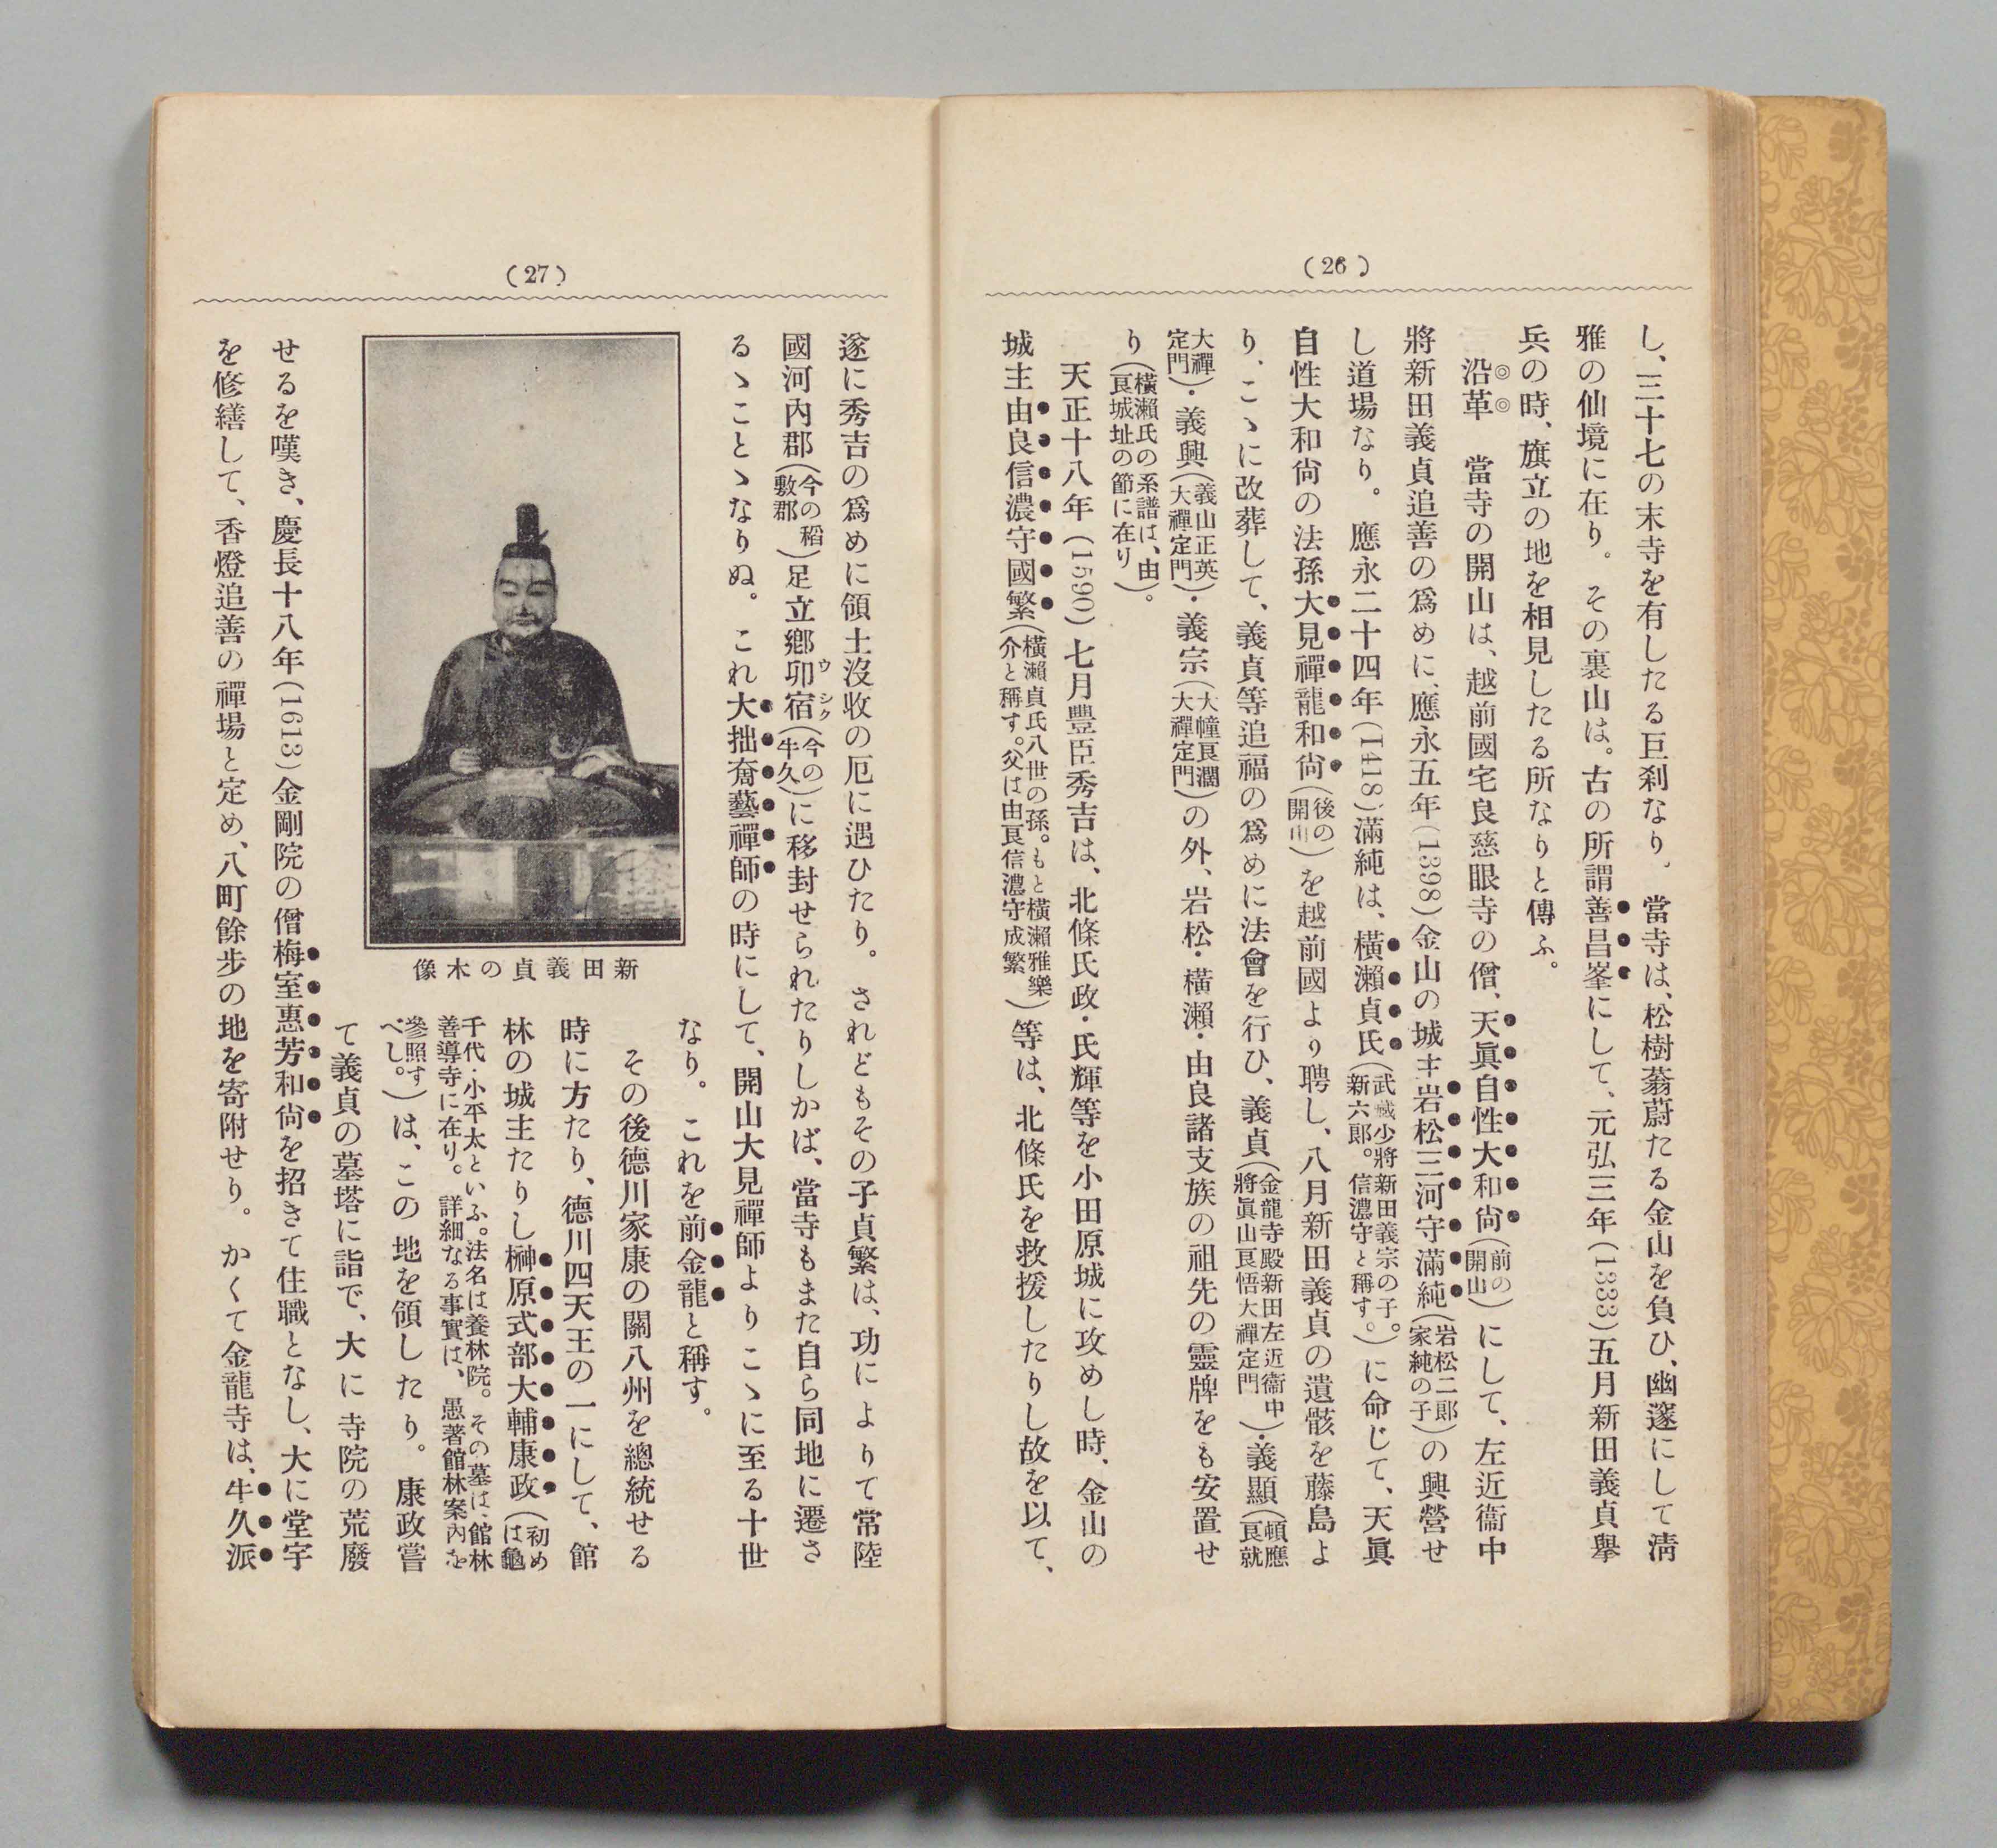 (26)
し、三十七の末寺を有したる巨刹なり。當寺は、松樹蓊蔚たる金山を負ひ、幽邃にして淸
雅の仙境に在り。その裏山は。古の所謂善昌峯にして、元弘三年(1333)五月新田義貞擧
兵の時、旗立の地を相見したる所なりと傳ふ。
沿革　當寺の開山は、越前國宅良慈眼寺の僧、天眞自性大和尙(前の開山)にして、左近衞中
將新田義貞追善の爲めに、應永五年(1398)金山の城主岩松三河守滿純(岩松二郎家純の子)の興營せ
し道場なり。應永二十四年(1418)滿純は、橫瀨貞氏(武藏少將新田義宗の子。新六郎。信濃守と稱す。)に命じて、天眞
自性大和尙の法孫大見禪龍和尙(後の開山)を越前國より聘し、八月新田義貞の遺骸を藤島よ
り、こゝに改葬して、義貞等追福の爲めに法會を行ひ、義貞(金龍寺殿新田左近衞中將眞山良悟大禪定門)・義顯(頓應良就
大禪定門)・義興(義山正英大禪定門)・義宗(大幢良濶大禪定門)の外、岩松・橫瀨・由良諸支族の祖先の靈牌をも安置せ
り(橫瀨氏の系譜は、由良城址の節に在り)。
天正十八年(1590)七月豐臣秀吉は、北條氏政・氏輝等を小田原城に攻めし時、金山の
城主由良信濃守國繁(橫瀨貞氏八世の孫。もと橫瀨雅樂介と稱す。父は由良信濃守成繁)等は、北條氏を救援したりし故を以て、
(27)
遂に秀吉の爲めに領土沒收の厄に遇ひたり。されどもその子貞繁は、功によりて常陸
國河內郡(今の稻敷郡)足立鄕卯宿(今の牛久)に移封せられたりしかば、當寺もまた自ら同地に遷さ
ウシク
るゝことゝなりぬ。これ大拙奝藝禪師の時にして、開山大見禪師よりこゝに至る十世
なり。これを前金龍と稱す。
その後德川家康の關八州を總統せる
時に方たり、德川四天王の一にして、館
林の城主たりし榊原式部大輔康政(初めは龜
千代・小平太といふ。法名は養林院。その墓は、館林善導寺に在り。詳細なる事實は、愚著館林案內を
參照すべし。)は、この地を領したり。康政嘗
て義貞の墓塔に詣で、大に寺院の荒廢
新田義貞の木像
せるを嘆き、慶長十八年(1613)金剛院の僧梅室惠芳和尙を招きて住職となし、大に堂宇
を修繕して、香燈追善の禪場と定め、八町餘步の地を寄附せり。かくて金龍寺は、牛久派